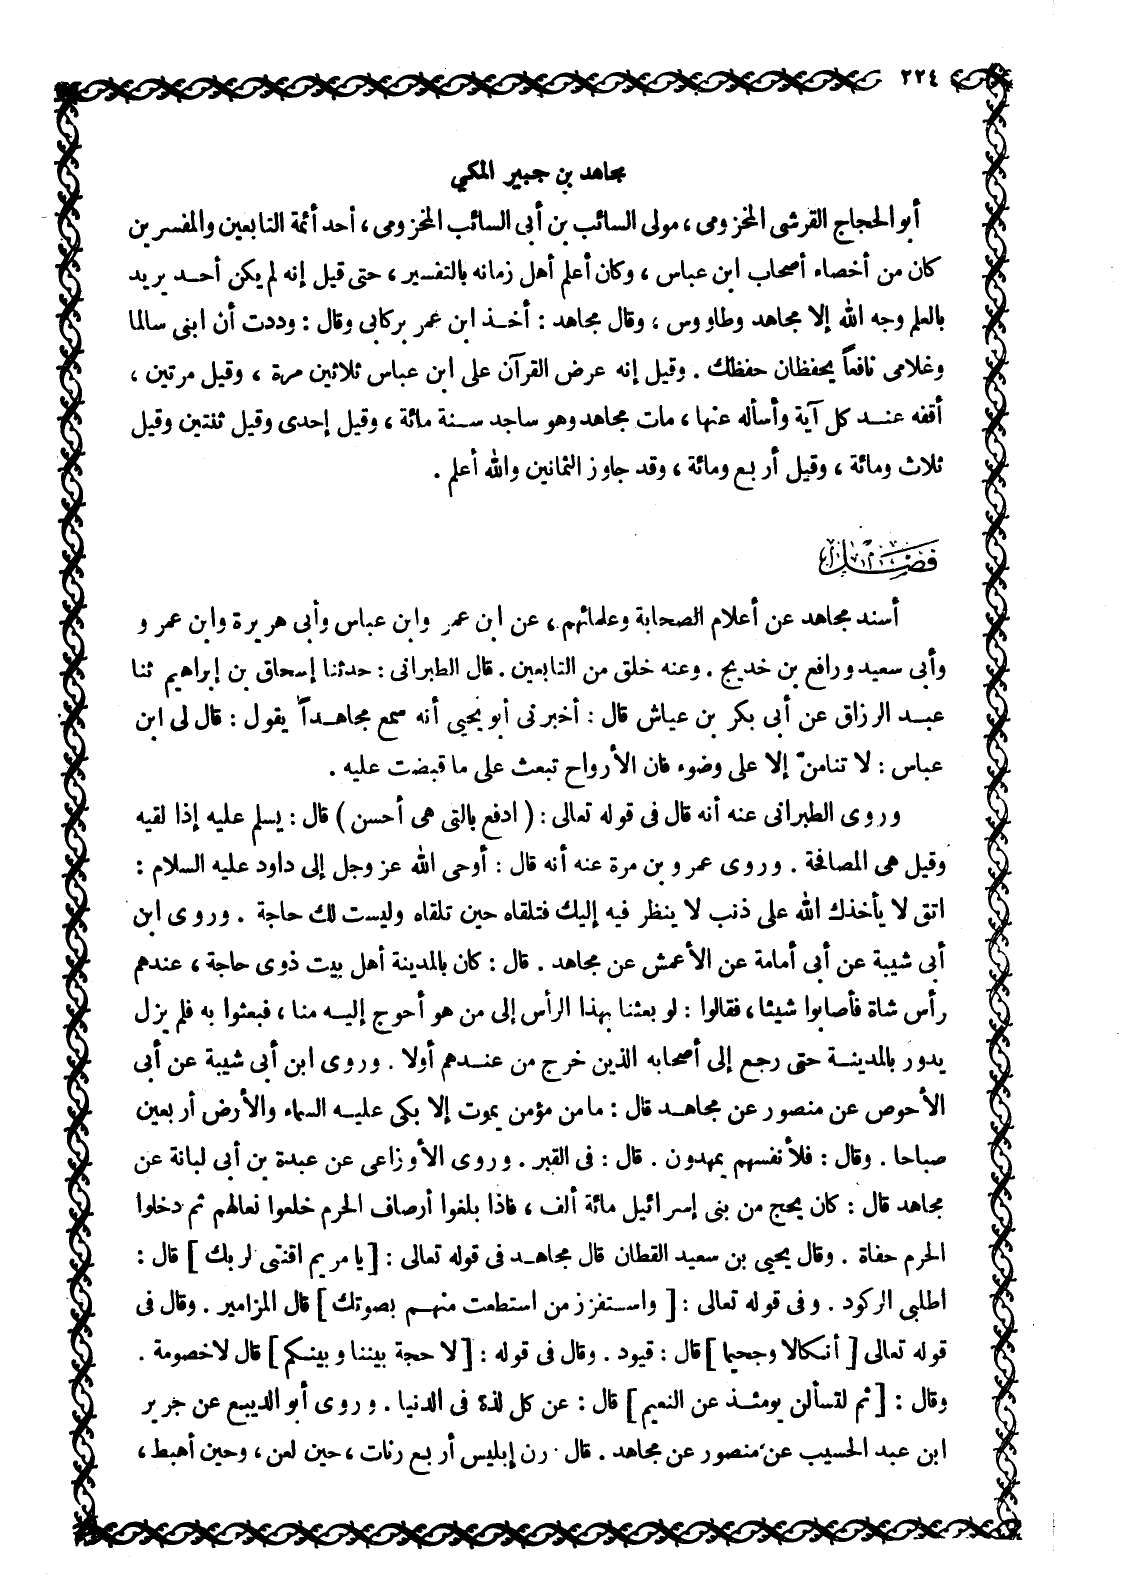 ٢٢٤
مجاهد بن جبير المكي
أبو الحجاج القرشى المخزومى ، مولى السائب بن أبى السائب المخزومى ، أحد أئمة التابعين والمفسرين
كان من أخصاء أصحاب ابن عباس ، وكان أعلم أهل زمانه بالتفسير ، حتى قيل إنه لم يكن أحد يريد
بالعلم وجه الله إلا مجاهد وطاوس ، وقال مجاهد : أخذ ابن عمر بركابى وقال : وددت أن ابنى سالما
وغلامى نافعاً يحفظان حفظك . وقيل إنه عرض القرآن على ابن عباس ثلاثين مرة ، وقيل مرتين ،
أقفه عند كل آية وأسأله عنها ، مات مجاهد وهو ساجد سنة مائة ، وقيل إحدى وقيل ثنتين وقيل
ثلاث ومائة ، وقيل أربع ومائة ، وقد جاوز الثمانين والله أعلم .
فصل
أسند مجاهد عن أعلام الصحابة وعلمائهم ، عن ابن عمر وابن عباس وأبى هريرة وابن عمرو
وأبى سعيد ورافع بن خديج . وعنه خلق من التابعين . قال الطبرانى : حدثنا إسحاق بن إبراهيم ثنا
عبد الرزاق عن أبى بكر بن عياش قال : أخبرنى أبو يحيى أنه سمع مجاهداً يقول : قال لى ابن
عباس : لا تنامنّ إلا على وضوء فان الأرواح تبعث على ما قبضت عليه .
وروى الطبرانى عنه أنه قال فى قوله تعالى : ( ادفع بالتى هى أحسن ) قال : يسلم عليه إذا لقيه
وقيل هى المصافحة . وروى عمرو بن مرة عنه أنه قال : أوحى الله عز وجل إلى داود عليه السلام :
اتق لا يأخذك الله على ذنب لا ينظر فيه إليك فتلقاه حين تلقاه وليست لك حاجة . وروى ابن
أبى شيبة عن أبى أمامة عن الأعمش عن مجاهد . قال : كان بالمدينة أهل بيت ذوى حاجة ، عندهم
رأس شاة فأصابوا شيئا ، فقالوا : لو بعثنا بهذا الرأس إلى من هو أحوج إليه منا ، فبعثوا به فلم يزل
يدور بالمدينة حتى رجع إلى أصحابه الذين خرج من عندهم أولا . وروى ابن أبى شيبة عن أبى
الأحوص عن منصور عن مجاهد قال : ما من مؤمن يموت إلا بكى عليه السماء والأرض أربعين
صباحا . وقال : فلأنفسهم يمهدون . قال : فى القبر . وروى الأوزاعى عن عبدة بن أبى لبانة عن
مجاهد قال : كان يحج من بنى إسرائيل مائة ألف ، فاذا بلغوا أرصاف الحرم خلعوا نعالهم ثم دخلوا
الحرم حفاة . وقال يحيى بن سعيد القطان قال مجاهد فى قوله تعالى : [ يا مريم اقنتى لربك ] قال :
اطلبى الركود . وفى قوله تعالى : [ واستفزز من استطعت منهم بصوتك ] قال المزامير . وقال فى
قوله تعالى [ أنكالا وجحيما ] قال : قيود . وقال فى قوله : [ لا حجة بيننا وبينكم ] قال لاخصومة .
وقال : [ ثم لتسألن يومئذ عن النعيم ] قال : عن كل لذة فى الدنيا . وروى أبو الديبع عن جرير
ابن عبد الحسيب عن منصور عن مجاهد . قال رن إبليس أربع رنات ، حين لعن ، وحين أهبط ،